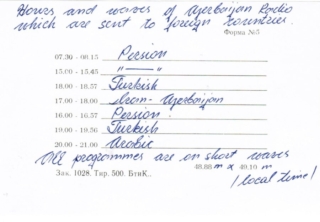 Hours and waves of Azerbaijan Radio
which are sent to foreign countries.
Форма №5
07.30 - 08.15 Persion
15.00 - 15.45 —"—
18.00 - 18.57 Turkish
17.00 - 18.00 Iran-Azerbaijan
16.00 - 16.57 Persion
19.00 - 19.56 Turkish
20.00 - 21.00 Arabic
All programmes are on short waves
48.88 m x 49.10 m
Зак. 1028. Тир. 500. БтиК..
/local time/